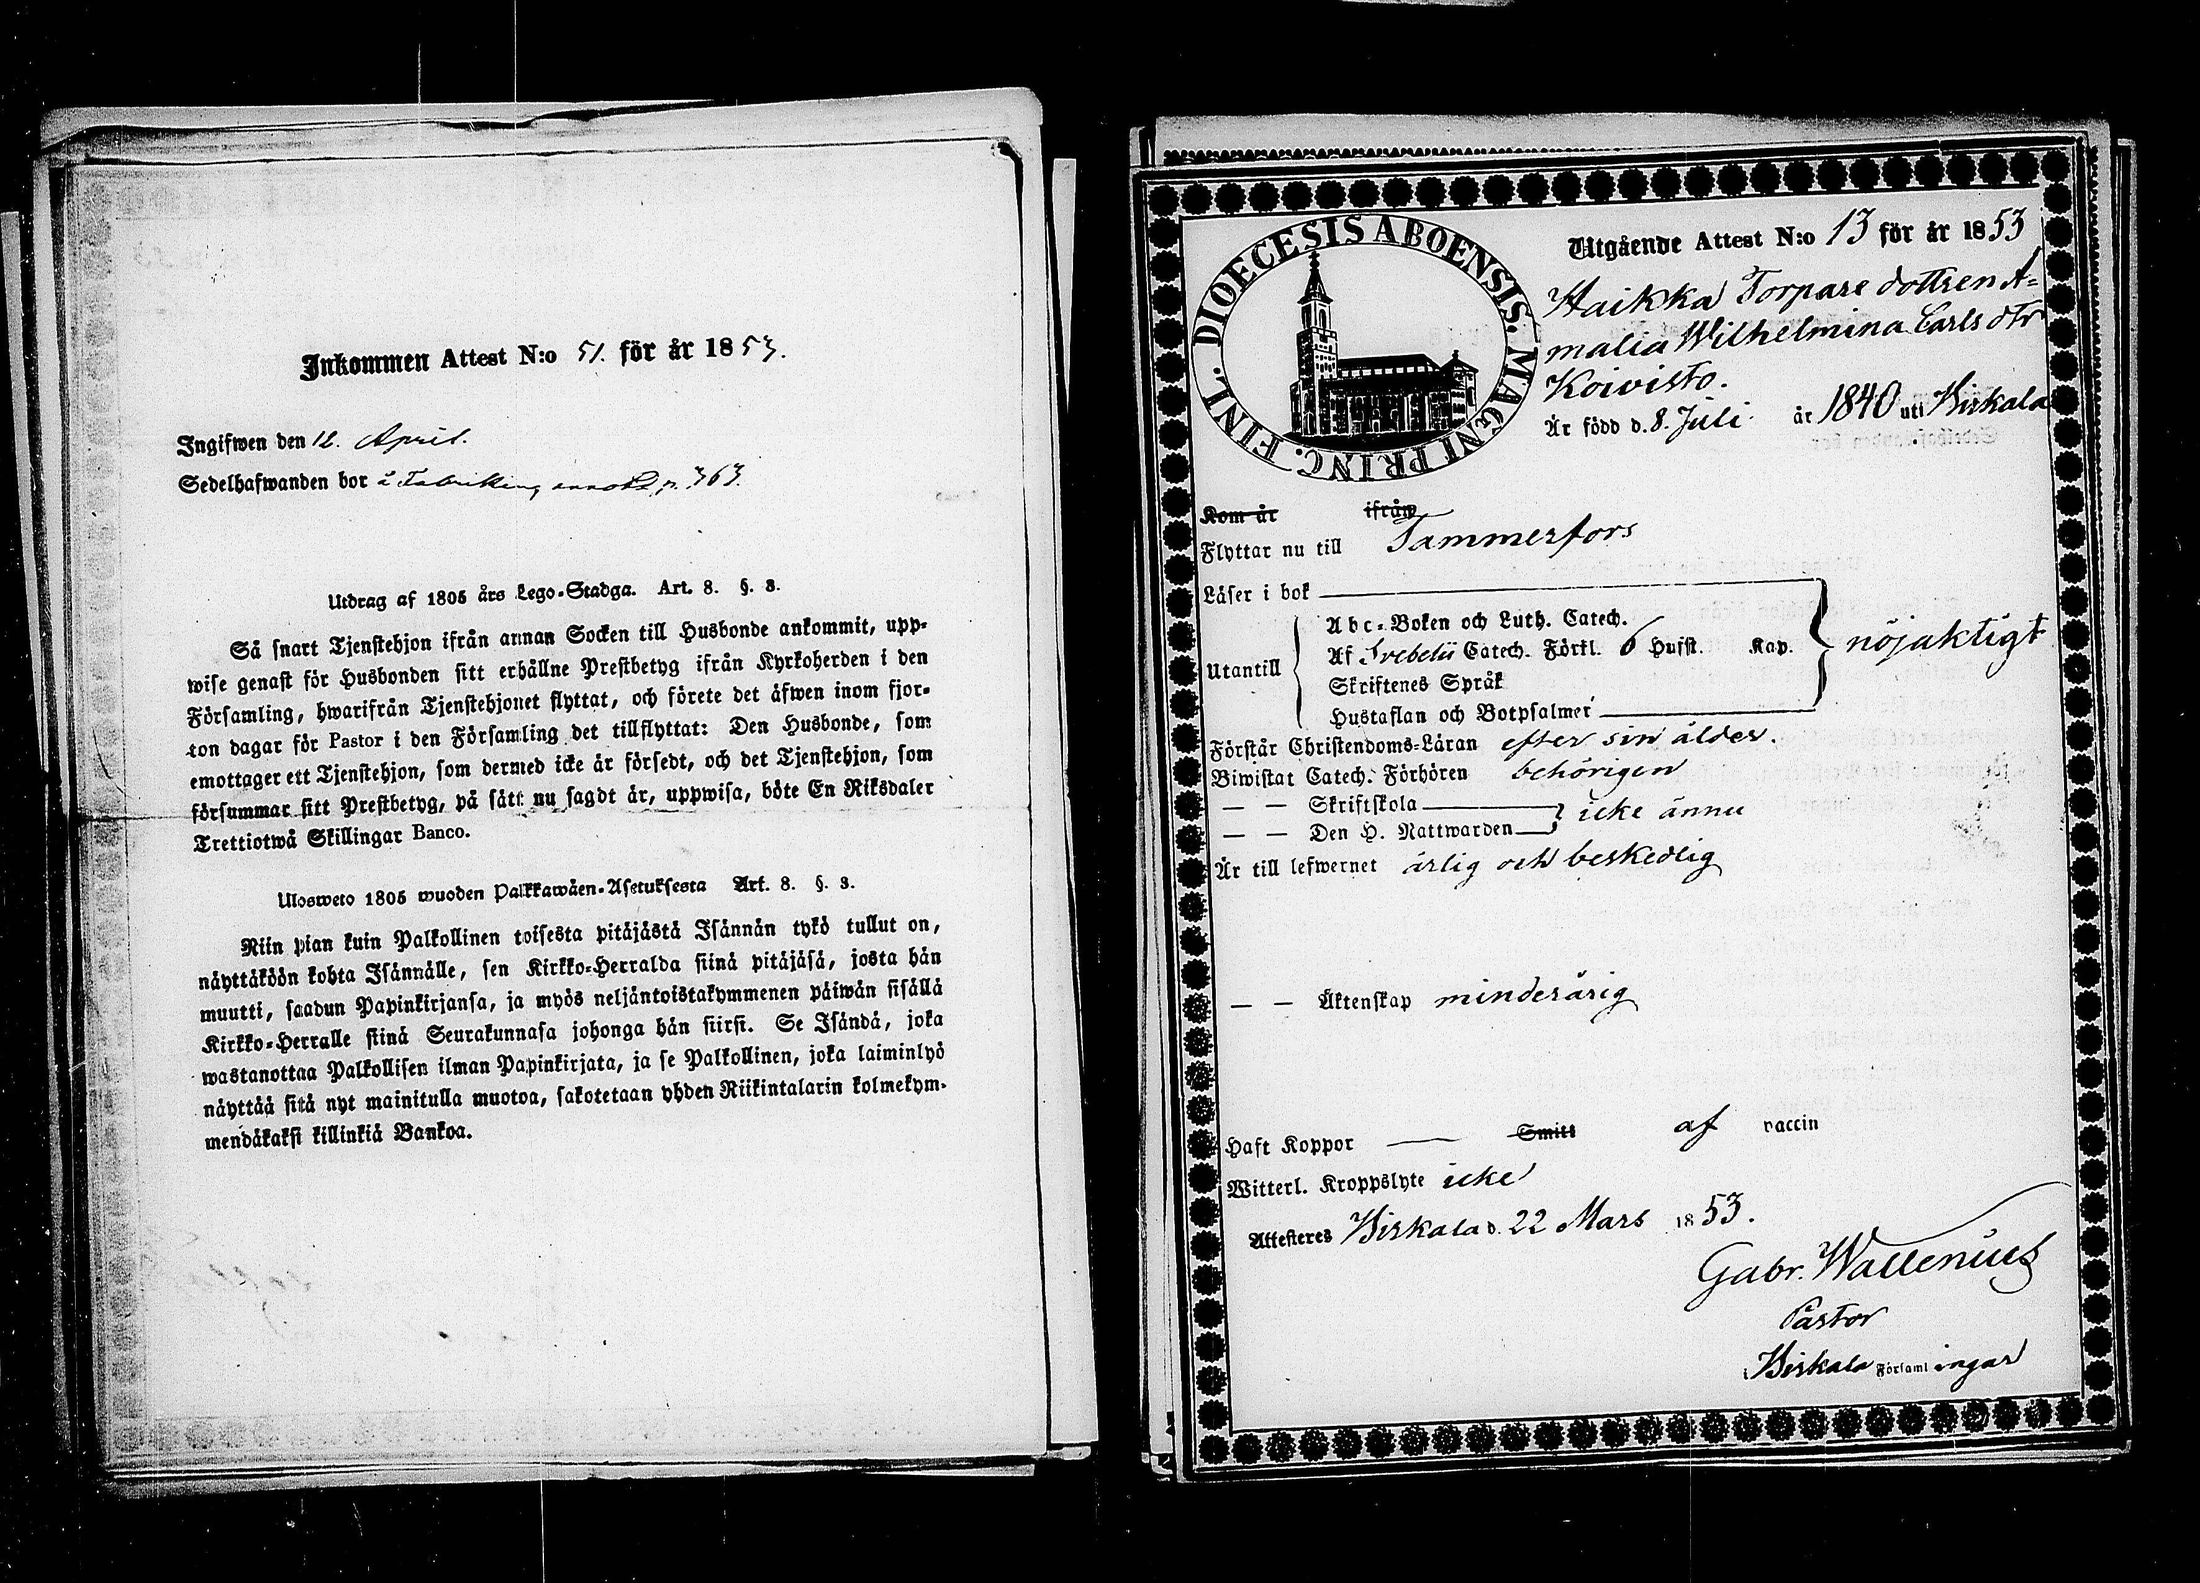 Inkommen Attest N:o 51. för år 1853.
Ingifwen den 12. April.
Sedelhafwanden bor å Fabriken, p. 363.
Utdrag af 1805 års Lego-Stadga. Art. 8. §. 3.
Så snart Tjenstehjon ifrån annan Socken till Husbonde ankommit, upp-
wise genast för Husbonden sitt erhållne Prestbetyg ifrån Kyrkoherden i den
Församling, hwarifrån Tjenstehjonet flyttat, och förete det äfwen inom fjor-
ton dagar för Pastor i den Församling det tillflyttat: Den Husbonde, som
emottager ett Tjenstehjon, som dermed icke är försedt, och det Tjenstehjon, som
försummar sitt Prestbetyg, på sätt nu sagdt är, uppwisa, böte En Riksdaler
Trettiotwå Skillingar Banco.
Ulosweto 1805 wuoden Palkkawäen-Asetuksesta Art. 8. §. 3.
Niin pian kuin Palkollinen toisesta pitäjästä Isännän tykö tullut on,
näyttäköön kohta Isännälle, sen Kirkko-Herralda siinä pitäjäsä, josta hän
muutti, saadun Papinkirjansa, ja myös neljäntoistakymmenen päiwän sisällä
Kirkko-Herralle siinä Seurakunnasa johonga hän siirsi. Se Isändä, joka
wastanottaa Palkollisen ilman Papinkirjata, ja se Palkollinen, joka laiminlyö
näyttää sitä nyt mainitulla muotoa, sakotetaan yhden Riikintalarin kolmekym-
mendäkaksi killinkiä Bankoa.
DIOECESIS ABOENSIS. MAGNI PRINC. FINL.
Utgående Attest N:o 13 för år 1853
Haikka Torpare dottren A-
malia Wilhelmina Carls dtr
Koivisto.
Är född d. 8. Juli år 1840 uti Birkala
Kom år ifrån
Flyttar nu till Tammerfors
Läser i bok
Utantill
Abc-Boken och Luth. Catech.
Af Svebelii Catech. Förkl. 6 Hufst. Kap.
nöjaktigt
Skriftenes Språk
Hustaflan och Botpsalmer
Förstår Christendoms-Läran efter sin ålder.
Biwistat Catech. Förhören behörigen
— — Skriftskola
icke ännu
— — Den H. Nattwarden
Är till lefwernet ärlig och beskedlig
— — Äktenskap minderårig
Haft Koppor — Smitt af vaccin
Witterl. Kroppslyte icke
Attesteres Birkala d. 22 Mars 1853.
Gabr. Wallenius
Pastor
i Birkala Församlingar